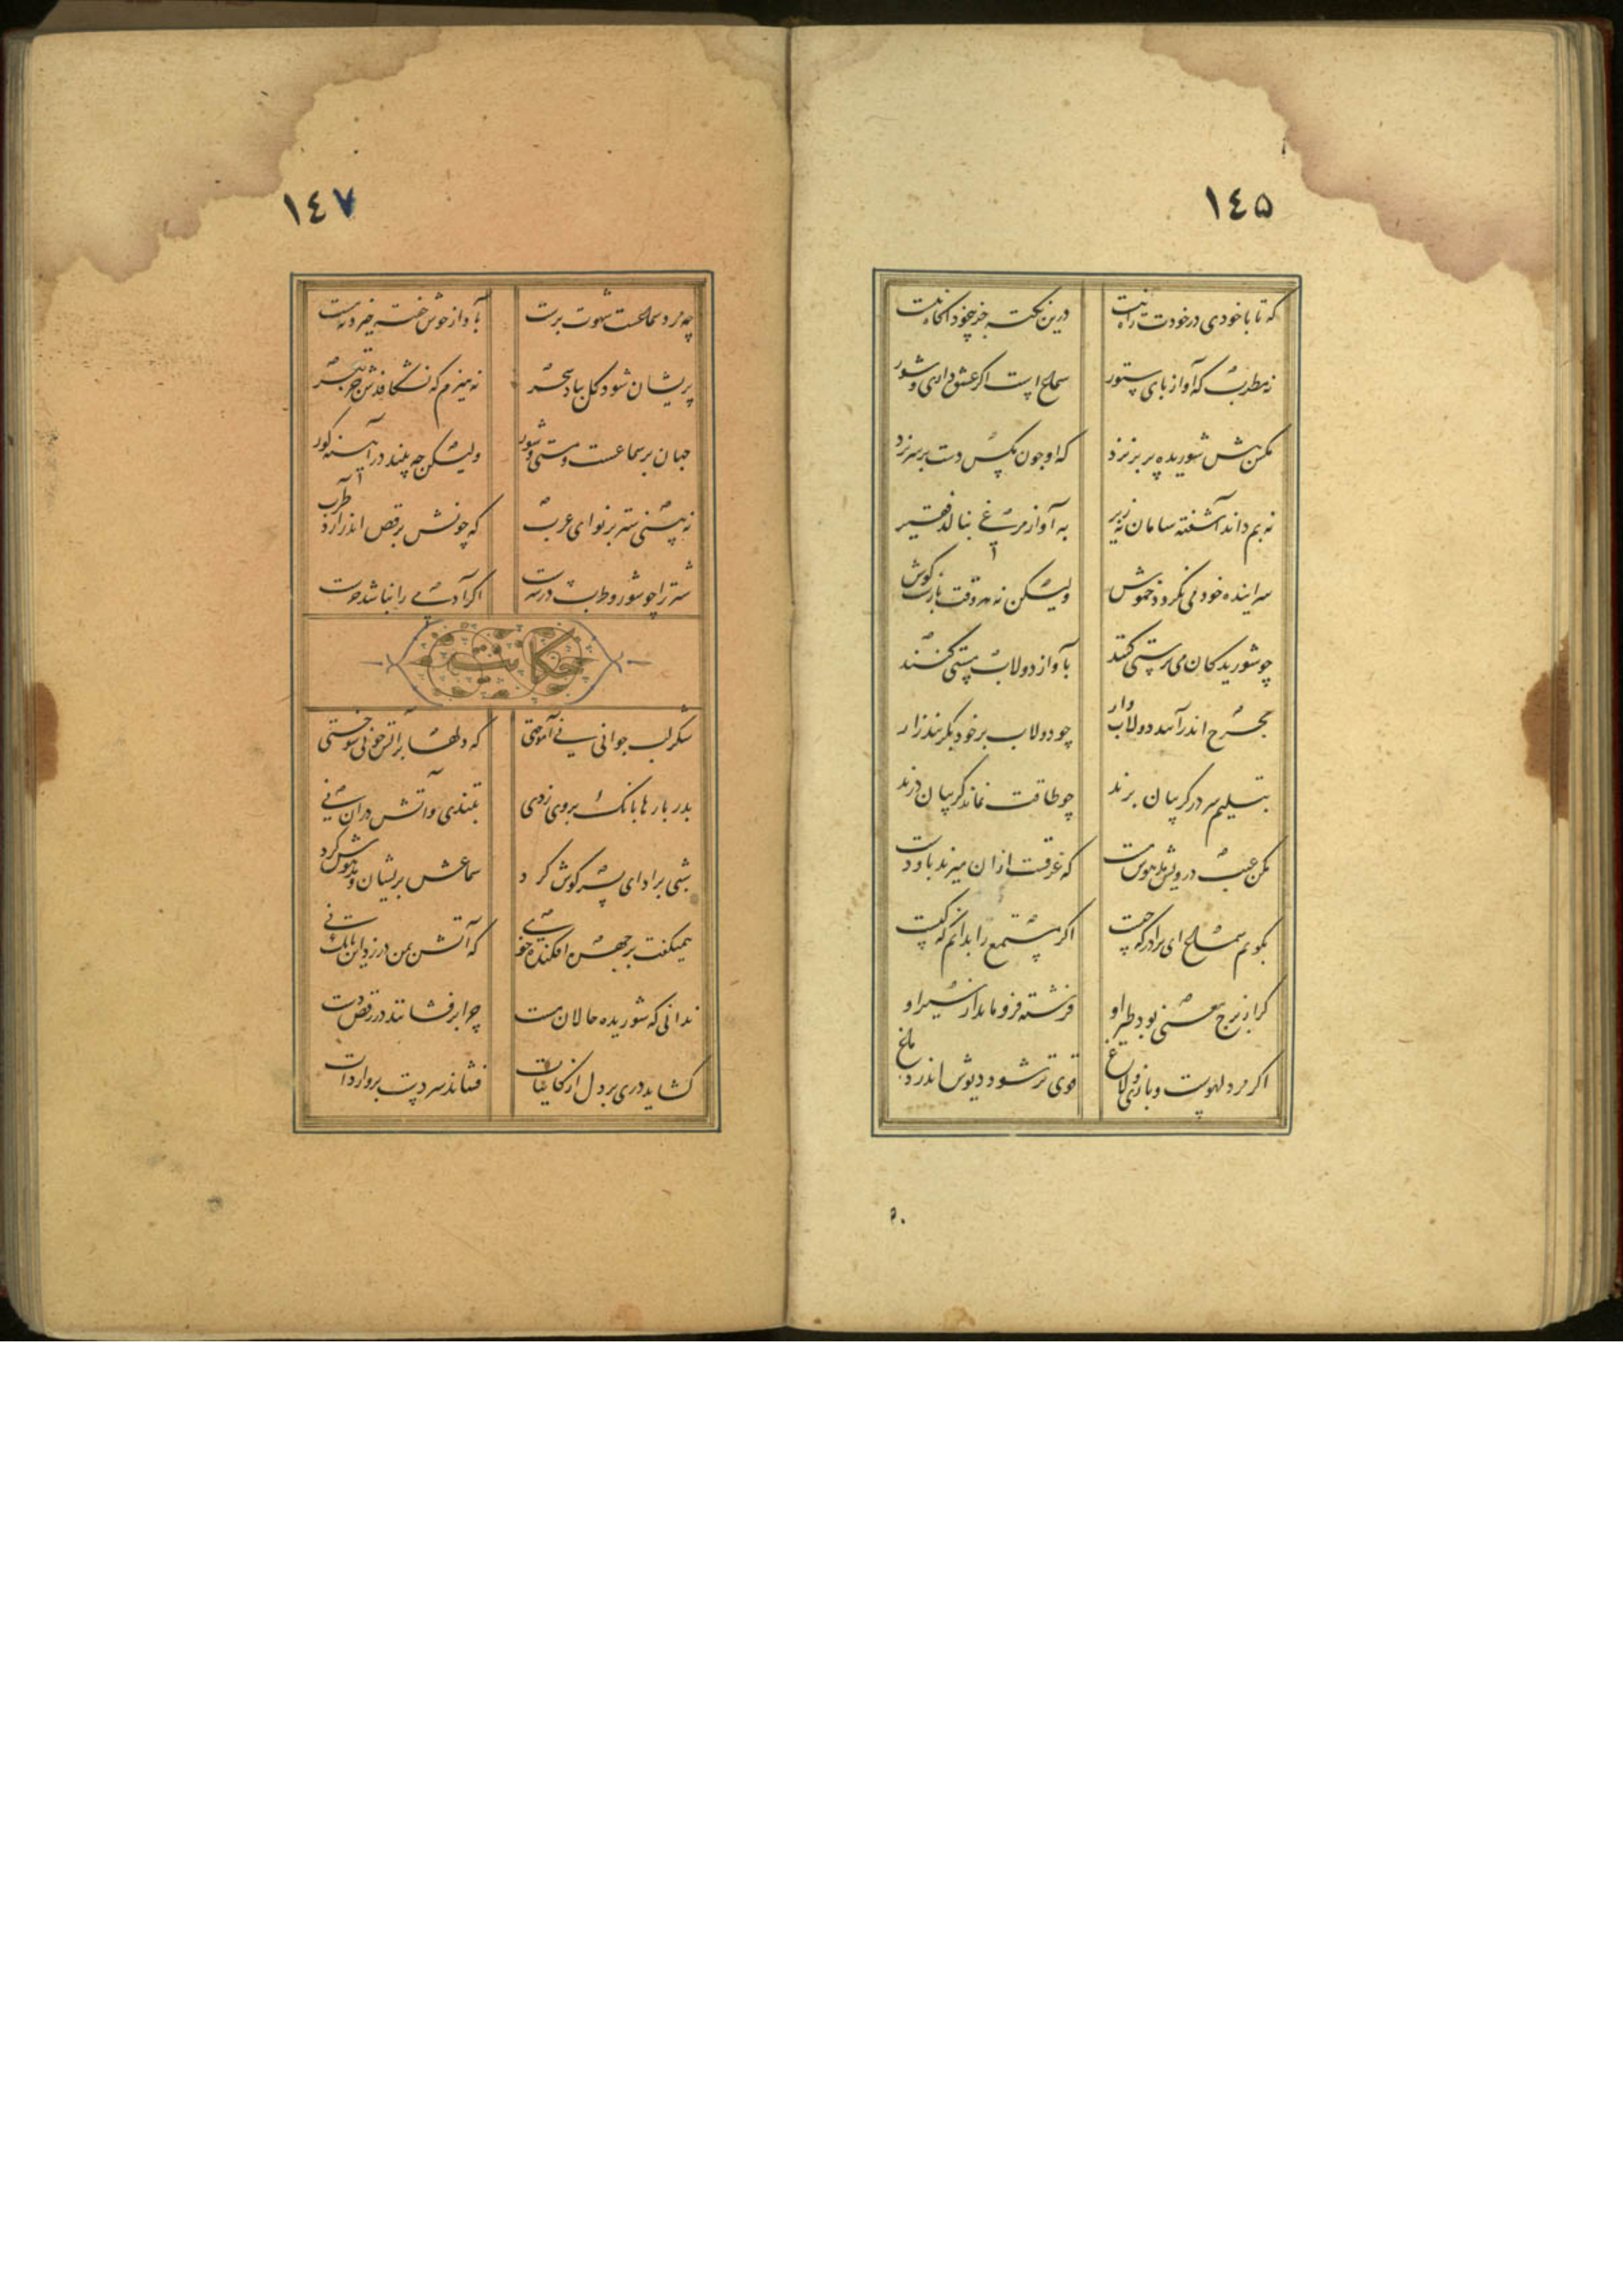 ١٤٥
که تا با خودی در خودت راه نیست
درین نکته جز بیخود آگاه نیست
نه مطرب که آواز پای ستور
سماعست اگر عشق داری و شور
مکس پیش شوریده پر نزد
که او چون مکس دست بر سر نزد
نه بم داند آشفته سامان نه زیر
به آواز مرغی بنالد فقیر
سراینده خود می نکردد خموش
ولیکن نه هر وقت بازست کوش
چو شوریدکان می پرستی کنند
بآواز دولاب مستی کنند
بچرخ اندر آمد دولاب وار
چو دولاب بر خود بکریند زار
بتسلیم سر در کریبان برند
چو طاقت نماند کریبان درند
مکن عیب درویش مدهوش مست
که غرقست ازان میزند با و دست
بکویم سماع ای برادر که چیست
اکر مستمع را بدانم که کیست
کر از برج معنی بود طیر او
فرشته فرو ماند از سیر او
اکر مرد لهوست و بازی و لاغ
قوی تر شود دیوش اندر دماغ
٥٠
١٤٧
چه مرد سماعست شهوت پرست
بآواز خوش خفته خیزد نه مست
پریشان شود کل بباد سحر
نه هیزم که نشکافدش جز تبر
جهان بر سماعست و مستی و شور
ولیکن چه بیند در آینه کور
نه بینی شتر بر نوای عرب
که چونش برقص اندر آرد طرب
شتر را چو شور و طرب در سرست
اکر آدمی را نباشد خرست
حکایت
شکر لب جوانی نی آموختی
که دلها بر آتش چو نی سوختی
پدر بارها بانک بر وی زدی
بتندی و آتش دران نی
شبی بر ادای پسر کوش کرد
سماعش پریشان و مدهوش کرد
همیکفت بر چهره افکنده خوی
که آتش بمن در زد این بانک نی
ندانی که شوریده حالان مست
چرا بر فشانند در رقص دست
کشاید دری بر دل از کاینات
فشاند سر دست بر واردات